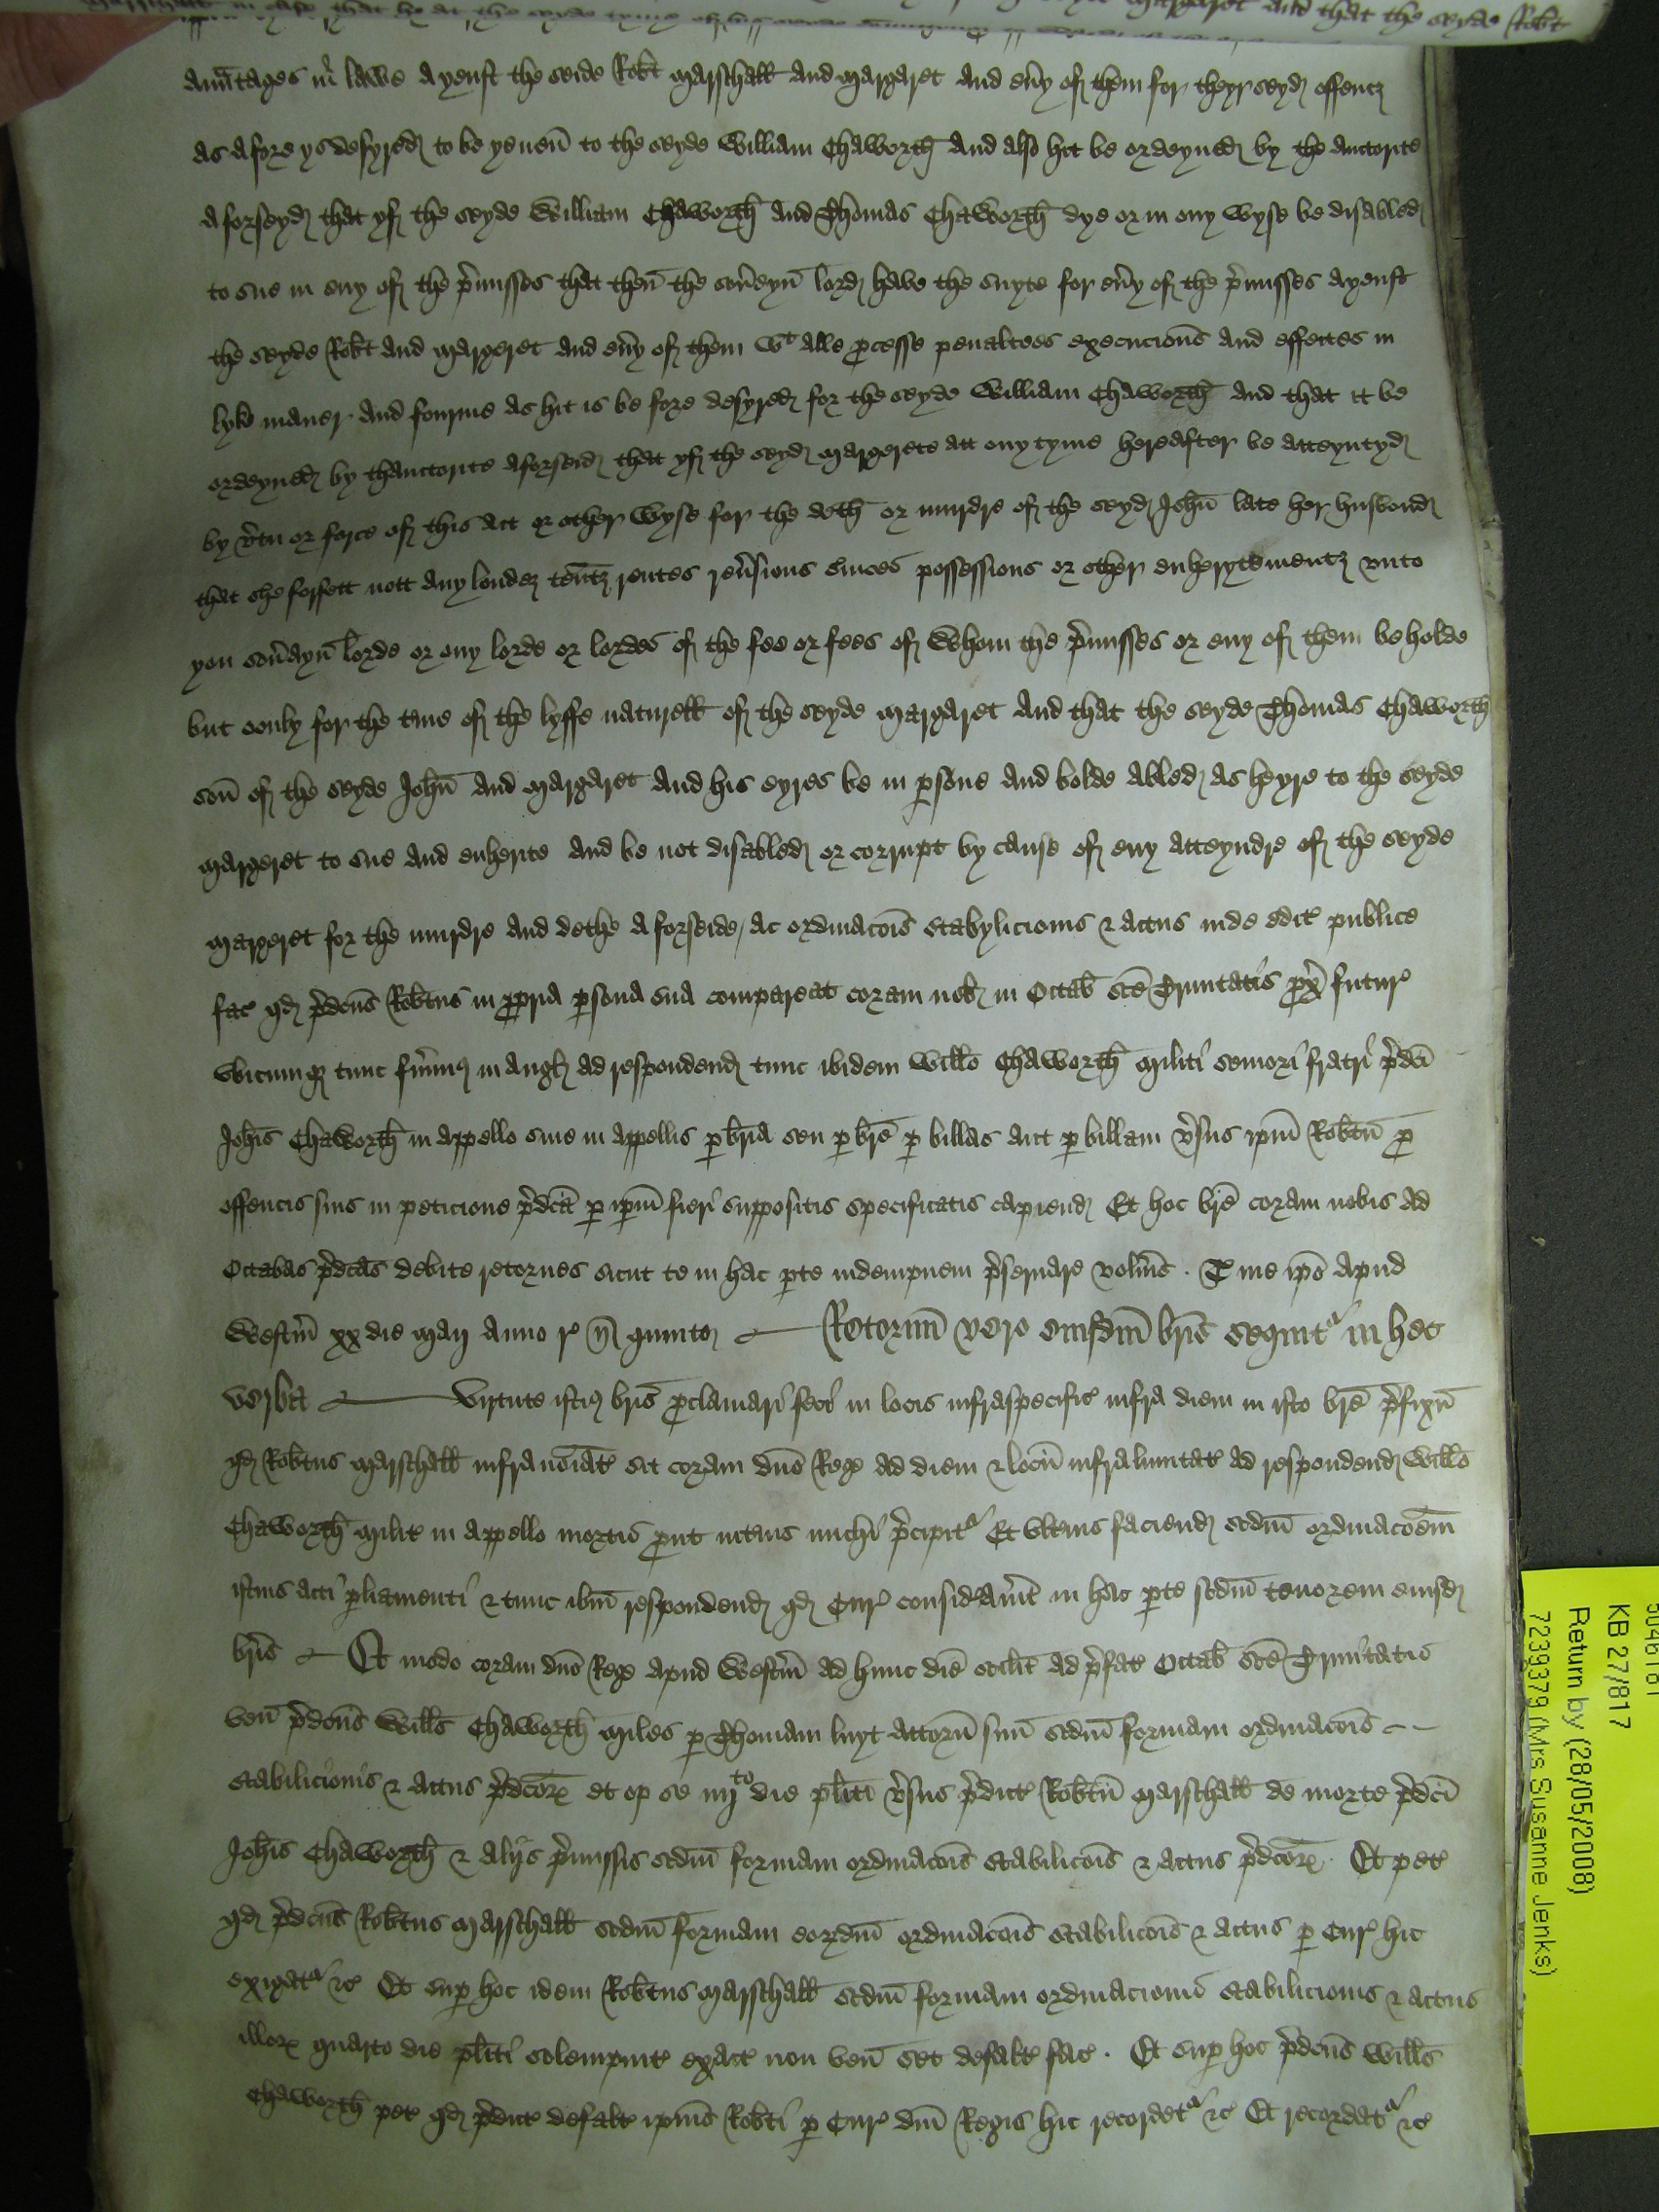 and that the seyde Robt
auntages in lawe ayenst the seide Robt Marschall and Margaret and eny of them for theyr seyd offencz
as afore ys desyred to be yeuen to the seyde William Chaworth and also hit be ordeyned by the auctorite
aforseyd that yf the seyde William Chaworth and Thomas Chaworth dye or in ony wyse be disabled
to sue in eny of the p'misses that then the sou'eyn lord have the suyte for eu'y of the p'misses ayenst
the seyde Robt and Margeret and eu'y of them wt alle processe penaltees execucions and effectes in
lyke maner and fourme as hit is be fore desyred for the seyde William Chaworth and that it be
ordeyned by thauctorite aforseid that yf the seyd Margerete att ony tyme hereafter be atteyntyd
by v'tu or force of this act or other wyse for the deth or murdre of the seyd John late her husbond
that she forfett nott any londez tentz rentes reu'sions s'uices possessions or other enherytementz vnto
you sou'ayn lorde or ony lorde or lordes of the fee or fees of whom the p'misses or eny of them be holde
but oonly for the time of the lyffe naturell of the seyde Margaret and that the seyde Thomas Chaworth
son of the seyde John and Margaret and his eyres be in p'sone and bolde abled as heyre to the seyde
Margeret to sue and enherite and be not disabled or corrupt by cause of eny atteyndre of the seyde
Margeret for the murdre and dethe aforseide / ac ordinacois stabylicionis & actus inde edit publice
fac qd p'dcus Robtus in propria p'sona sua compareat coram nob in Octab sce Trinitatis prox futur
vbicumq tunc fu'imus in Angl ad respondend tunc ibidem Willo Chaworth militi seniori fratri p'dci
Johis Chaworth in appello siue in appellis p bria seu p bre p billas aut p billam v'sus ipm Robtu p
offencis suis in peticione p'dca p ipm fieri suppositis specificatis capiend Et hoc bre coram nobis ad
Octabas p'dcas debite retornes sicut te in hac pte indempnem p'seruare volu'is . T me ipo apud
Westm xx die Maij anno r n quinto Retornu vero eiusdm bris sequit' in hec
verba Virtute istius bris proclamari feci in locis infraspecific infra diem in isto bre p'fixu
qd Robtus Marschall infranoiat sit coram dno Rege ad diem & locu infralimitat ad respondend Willo
Chaworth milit in appello mortis prout interius michi p'cipit' Et vlterius faciend scdm ordinacoem
istius acti p'liamenti & tunc ibm respondend qd Cur consid'auit in hac pte scdm tenorem eiusd
bris Et modo coram dno Rege apud Westm ad hunc die scilt ad p'fat Octab sce Trinitatis
ven p'dcus Wills Chaworth miles p Thomam luyt attorn suu scdm formam ordinacois
stabilicionis & actus p'dcor et op se iiijto die pliti v'sus p'dict Robtu Marschall de morte p'dci
Johis Chaworth & alijs p'missis scdm formam ordinacois stabilicois & actus p'dcor . Et pet
qd p'dcus Robtus Marschall scdm formam eordm ordinacois stabilicois & actus p Cur hic
exigat' &c Et sup hoc idem Robtus Marschall scdm formam ordinacionis stabilicionis & actus
illor quarto die pliti solempnit exact non ven set defalt fac . Et sup hoc p'dcus Wills
Chaworth pet qd p'dict defalt ipius Robti p Cur dni Regis hic recordet' &c Et recordat' &c
KB 27/817
Return by (28/05/2008)
7239379 (Mrs Susanne Jenks)